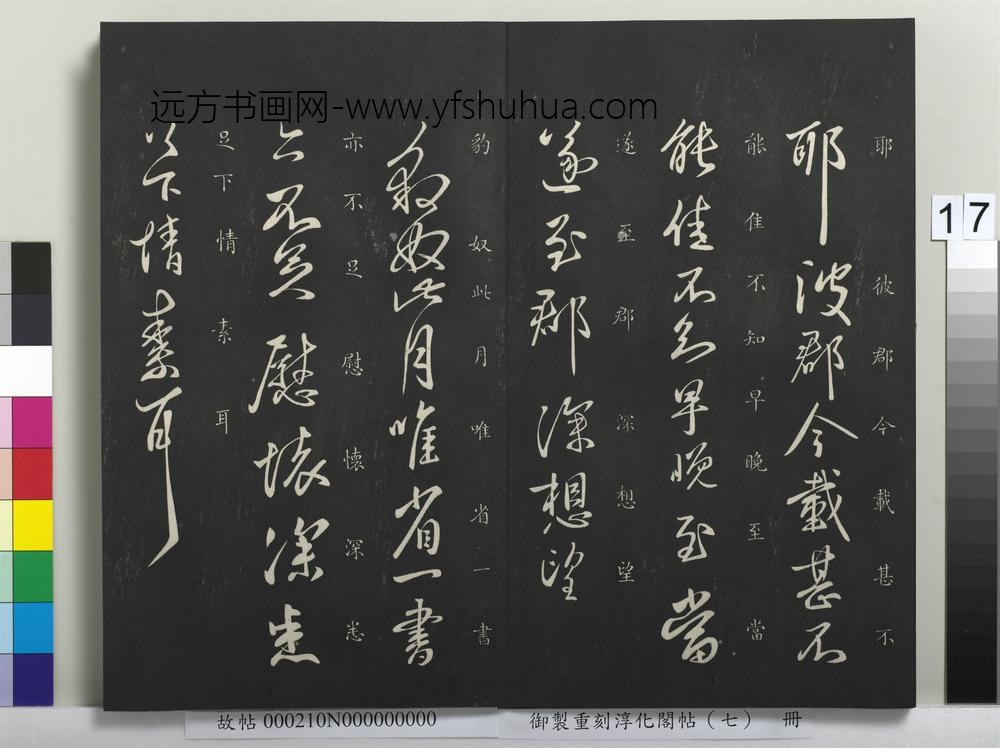 远方书画网-www.yfshuhua.com
耶彼郡今載甚不
耶彼郡今載甚不
能佳不知早晚至當
能隹不知早晚至當
遂至郡深想望
遂至郡深想望
豹奴此月唯省一書
豹奴此月唯省一書
亦不足慰懷深恙
亦不足慰懷深恙
足下情素耳
足下情素耳
17
故帖 000210N000000000
御製重刻淳化閣帖（七） 冊